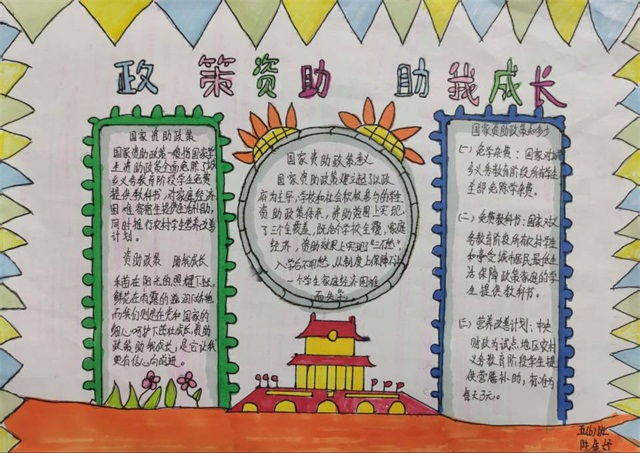 政策资助 助我成长
国家资助政策
国家资助政策一般指国家学
生资助政策全面免除了城
乡义务教育阶段学生免费
提供教科书，对家庭经济
困难寄宿生提供生活补助，
同时推行农村学生营养改善
计划。
资助政策 助我成长
禾苗在阳光的照耀下
鲜花在雨露的滋润下
而我们则是在党和国家的
细心呵护下茁壮成长，资助
政策助我成长，是它让我
更有信心向前进。
国家资助政策意义
国家资助政策建立起了以政
府为主导，学校和社会积极参与的学生
资助政策体系，资助范围上实现
了三个覆盖，既各个学校全覆，家庭
经济，资助效果上实现“三不愁”，
入学前不用愁，从制度上保障不让
一个学生家庭经济困难
而失学。
国家资助政策知多少
(一)免学杂费：国家对城
乡义务教育阶段所有学生
全部免除学杂费。
(二)免费教科书：国家对义
务教育阶段所有农村学生
和享受城市居民最低生
活保障政策家庭的学
生提供教科书。
(三)营养改善计划：中央
财政为试点地区农村
义务教育阶段学生提
供营养补助，标准为
每天3元。
五(6)班
陈